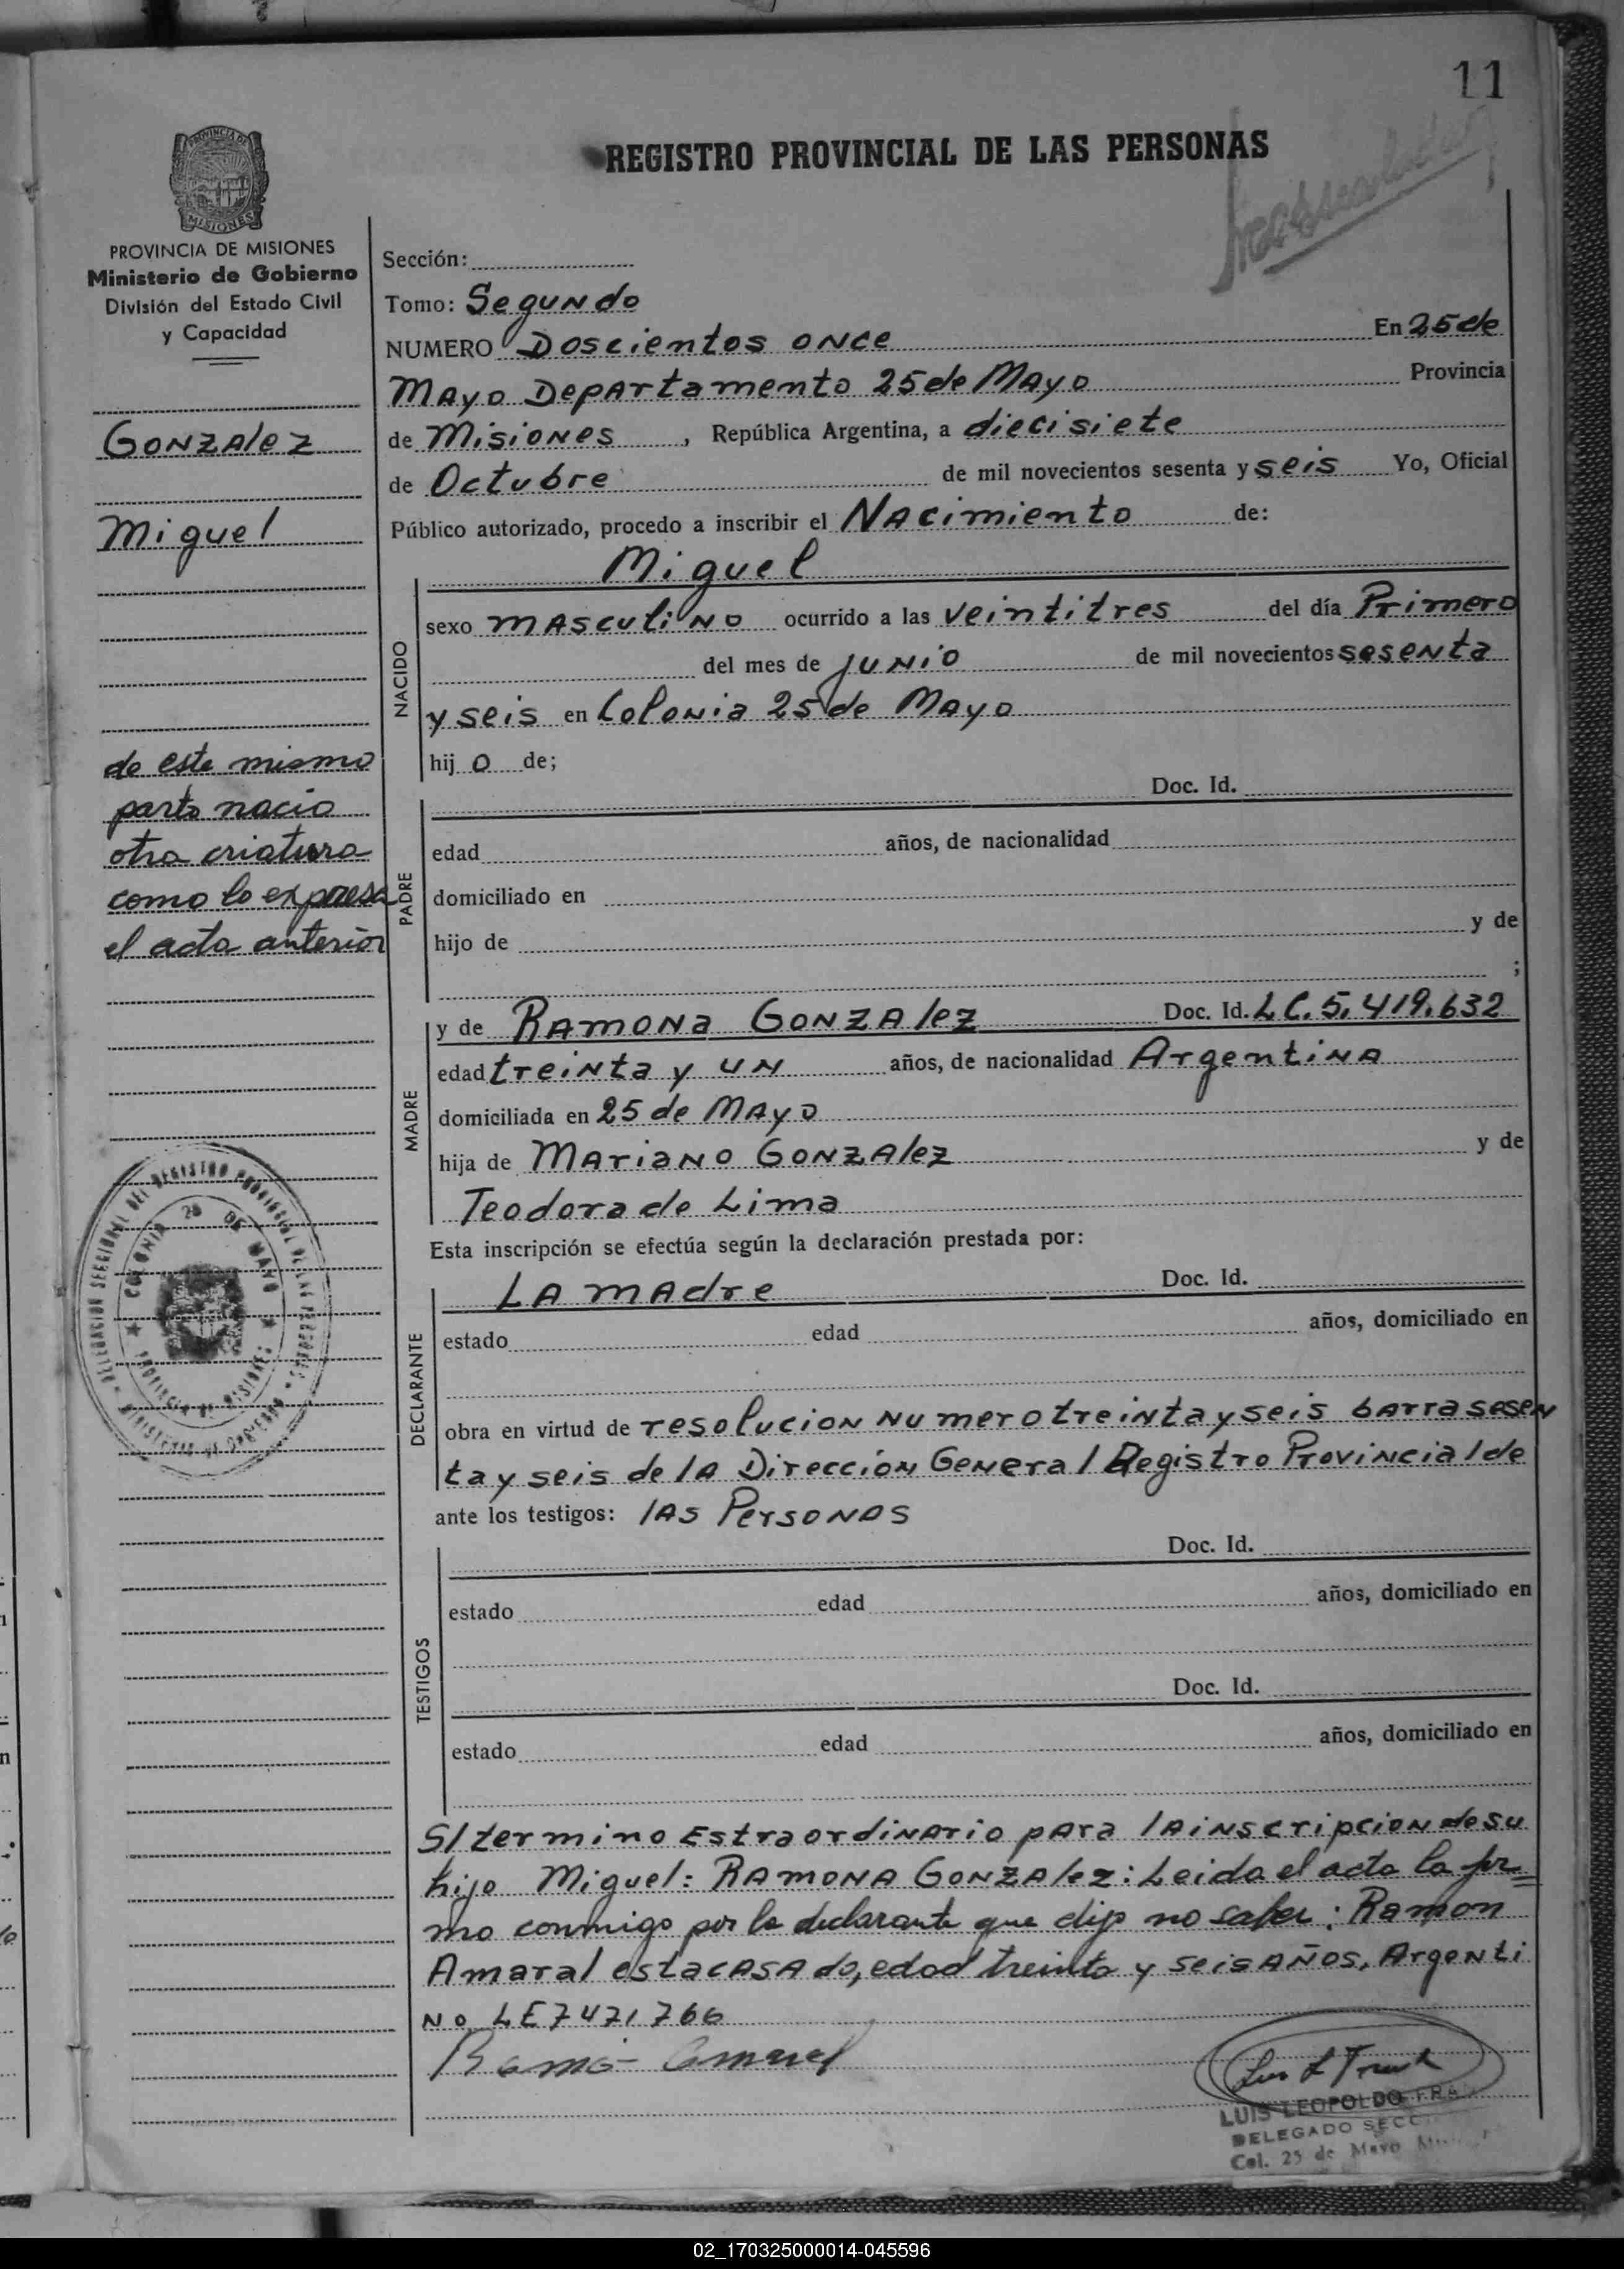 11
REGISTRO PROVINCIAL DE LAS PERSONAS
PROVINCIA DE MISIONES
PROVINCIA DE MISIONES
Ministerio de Gobierno
División del Estado Civil
y Capacidad
GONZALEZ
Miguel
de este mismo
parto nacio
otra criatura
como lo expresa
el acta anterior
DELEGACION SECCIONAL DEL REGISTRO PROVINCIAL DE LAS PERSONAS
COLONIA 25 DE MAYO
PROVINCIA DE MISIONES
MINISTERIO DE GOBIERNO
Sección:
Tomo: Segundo
NUMERO Doscientos once En 25 de
Mayo Departamento 25 de Mayo Provincia
de Misiones, República Argentina, a diecisiete
de Octubre de mil novecientos sesenta y seis Yo, Oficial
Público autorizado, procedo a inscribir el Nacimiento de:
NACIDO
Miguel
sexo masculino ocurrido a las veintitres del día Primero
del mes de junio de mil novecientos sesenta
y seis en Colonia 25 de Mayo
hij o de;
PADRE
Doc. Id.
edad años, de nacionalidad
domiciliado en
hijo de y de
;
MADRE
y de Ramona Gonzalez Doc. Id. LC. 5.419.632
edad treinta y un años, de nacionalidad Argentina
domiciliada en 25 de Mayo
hija de Mariano Gonzalez y de
Teodora de Lima
Esta inscripción se efectúa según la declaración prestada por:
DECLARANTE
La madre Doc. Id.
estado edad años, domiciliado en
obra en virtud de resolucion numero treinta y seis barra sesen
ta y seis de la Direccion General Registro Provincial de
ante los testigos: las Personas
TESTIGOS
Doc. Id.
estado edad años, domiciliado en
Doc. Id.
estado edad años, domiciliado en
S/termino Estraordinario para la inscripcion de su
hijo Miguel: Ramona Gonzalez: Leida el acta la fir=
mo conmigo por la declarante que dijo no saber: Ramon
Amaral esta casado, edad treinta y seis años, Argenti
no LE 7471766
Ramó Amaral
LUIS LEOPOLDO
DELEGADO
Col. 25 de Mayo
02_170325000014-045596